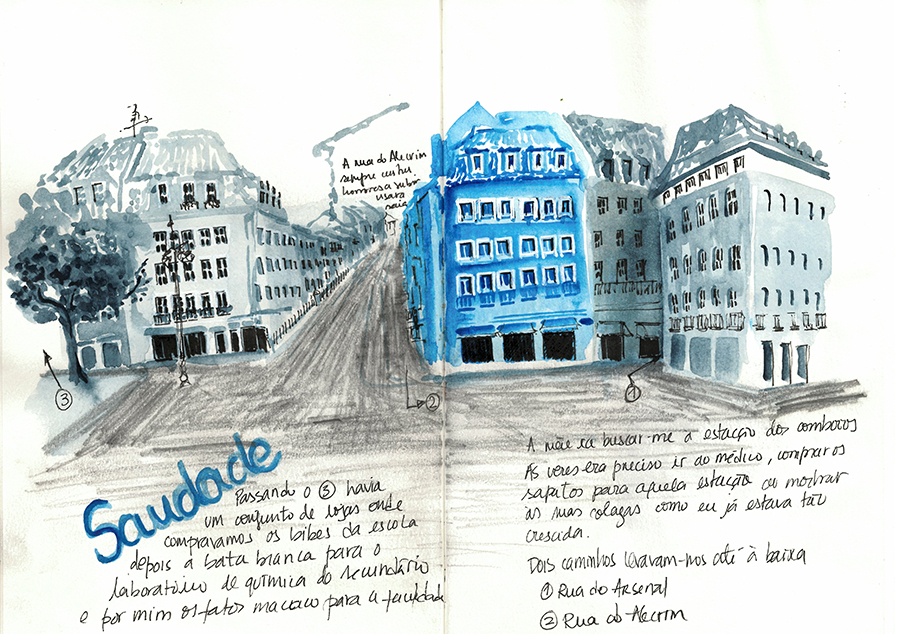 A rua do Alecrim
sempre custou
horrores a subir
usava
meia
③
②
①
Saudade
Passando o ③ havia
um conjunto de lojas onde
compravamos os bibes da escola
depois a bata branca para o
laboratório de química do secundário
e por mim os fatos macaco para a faculdade
A mãe ia buscar-me à estação dos comboios
Às vezes era preciso ir ao médico, comprar os
sapatos para aquela estação ou mostrar
às suas colegas como eu já estava tão
crescida.
Dois caminhos levavam-nos até à baixa
① Rua do Arsenal
② Rua do Alecrim